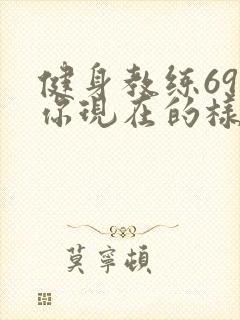 健身教练69
你现在的样
莫寧頓